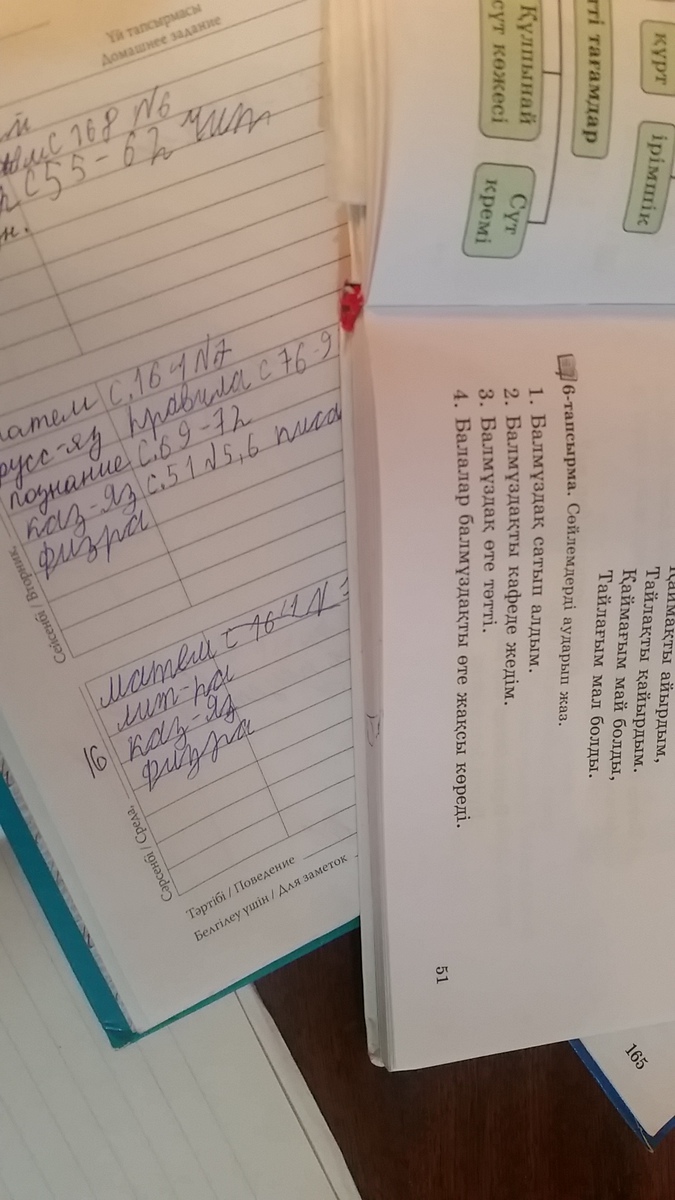 Үй тапсырмасы
Домашнее задание
с 168 N6
с 55-62 чит
матем с.161 N7
русс-яз правила с 76-9
познание с.69-72
каз-яз с.51 N5,6 писа
физра
Сейсенбі / Вторник
16
матем с 161 N
лит-ра
каз-яз
физра
Сәрсенбі / Среда
Тәртібі / Поведение
Белгілеу үшін / Для заметок
тті тағамдар
құрт
ірімшік
Құлпынай
сүт көжесі
Сүт
кремі
Қаймақты айырдым,
Тайлақты қайырдым.
Қаймағым май болды,
Тайлағым мал болды.
6-тапсырма. Сөйлемдерді аударып жаз.
1. Балмұздақ сатып алдым.
2. Балмұздақты кафеде жедім.
3. Балмұздақ өте тәтті.
4. Балалар балмұздақты өте жақсы көреді.
51
165